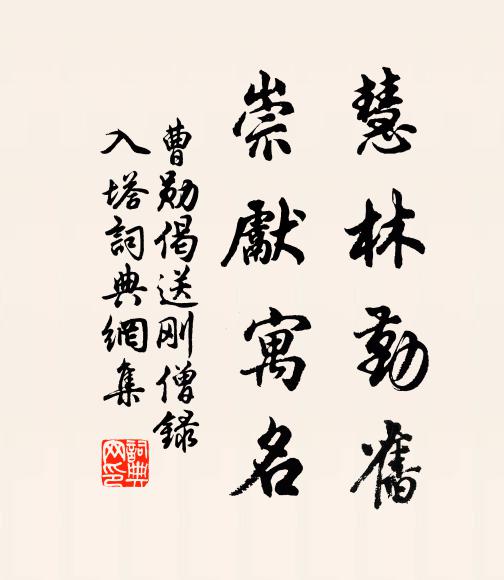 慧林勤舊
崇獻寓名
曹勛偈送刚僧録
入塔詞典網集
詞典網印